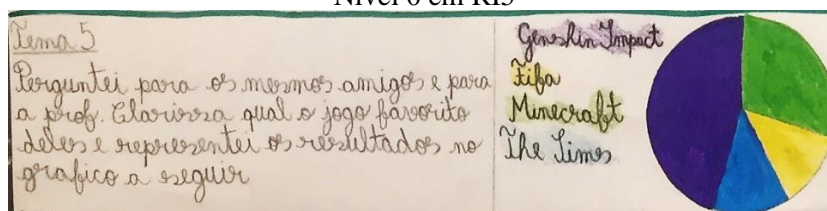 Nível 6 em RI5
Tema 5
Perguntei para os mesmos amigos e para
a prof. Clarissa qual o jogo favorito
deles e representei os resultados no
grafico a seguir
Genshin Impact
Fifa
Minecraft
The Times